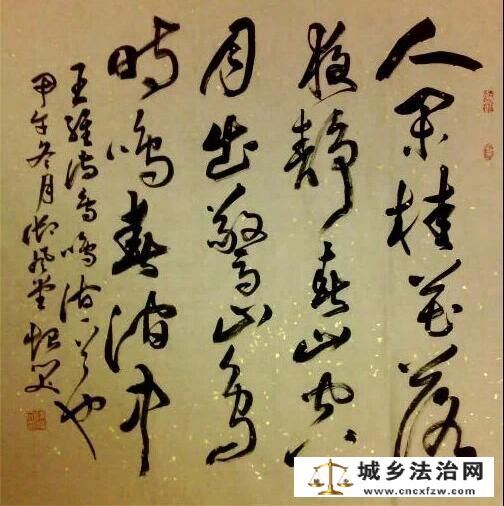 人闲桂花落
夜静春山空
月出驚山鸟
时鸣春涧中
王维诗鸟鸣涧一首也
甲午冬月御风堂
城乡法治网
www.cncxfzw.com